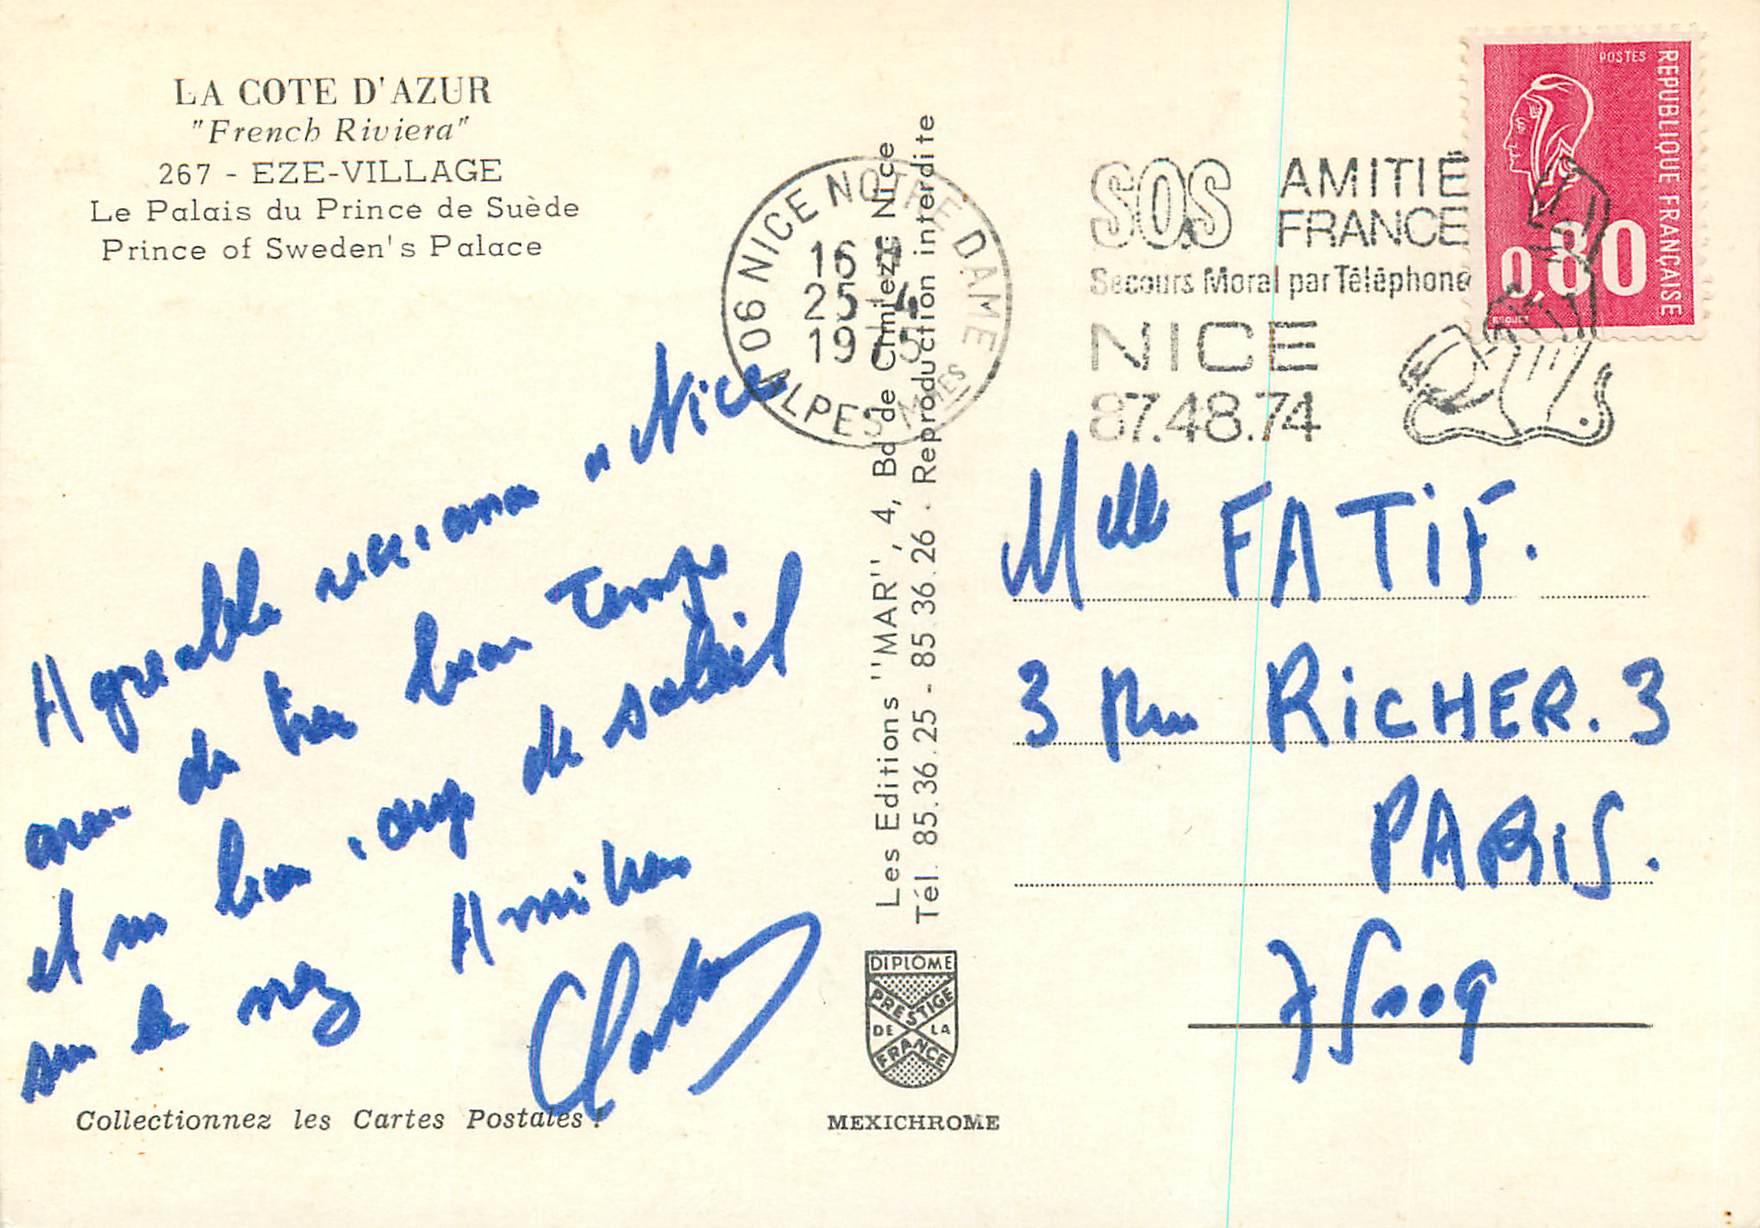 LA COTE D'AZUR
"French Riviera"
267 - EZE-VILLAGE
Le Palais du Prince de Suède
Prince of Sweden's Palace
Agreable semaine a Nice
avec de tres beau temps
et un beau coup de soleil
sur le nez Amities
Collectionnez les Cartes Postales !
Les Editions "MAR", 4, Bd de Cimiez Nice
Tél. 85.36.25 - 85.36.26 . Reproduction interdite
DIPLOME
PRESTIGE
DE LA
FRANCE
MEXICHROME
06 NICE NOTRE DAME
16 H
25-4
1975
ALPES Mmes
SOS AMITIÉ
FRANCE
Secours Moral par Téléphone
NICE
87.48.74
POSTES
REPUBLIQUE FRANÇAISE
0,80
Mlle FATIF.
3 Rue RiCHER. 3
PARIS.
75009